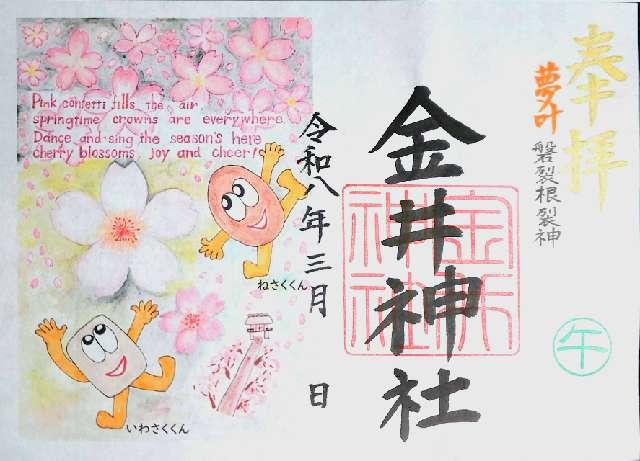 奉拝
夢叶
磐裂根裂神
金井神社
金井神社
午
令和八年三月　日
Pink confetti fills the air,
springtime crowns are everywhere.
Dance and sing the season's here
cherry blossoms, joy and cheer!
ねさくくん
いわさくくん